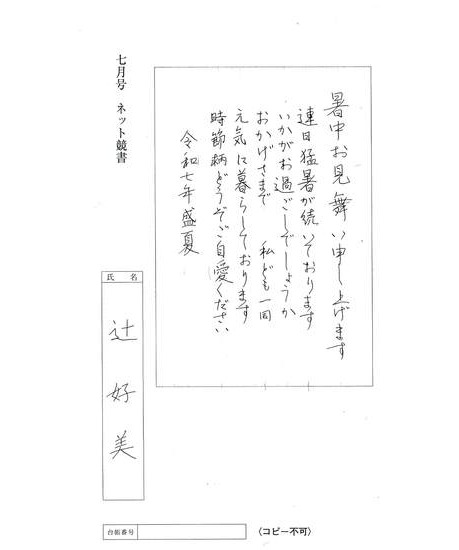 七月号 ネット競書
暑中お見舞い申し上げます
連日猛暑が続いております
いかがお過ごしでしょうか
おかげさまで 私ども一同
元気に暮らしております
時節柄どうぞご自愛ください
令和七年盛夏
氏名
辻好美
台紙番号
〈コピー不可〉